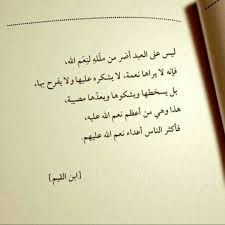 ليس على العبد أضر من ملله لنعم الله،
فإنه لا يراها نعمة، لا يشكره عليها ولا يفرح بها،
بل يسخطها ويشكوها ويعدها مصيبة،
هذا وهي من أعظم نعم الله عليه،
فأكثر الناس أعداء نعم الله عليهم.
[ابن القيم]